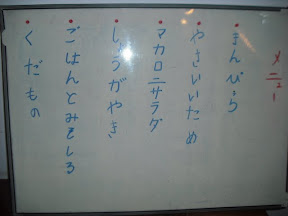 メニュー
・きんぴら
・やさいいため
・マカロニサラダ
・しょうがやき
・ごはんとみそしる
・くだもの